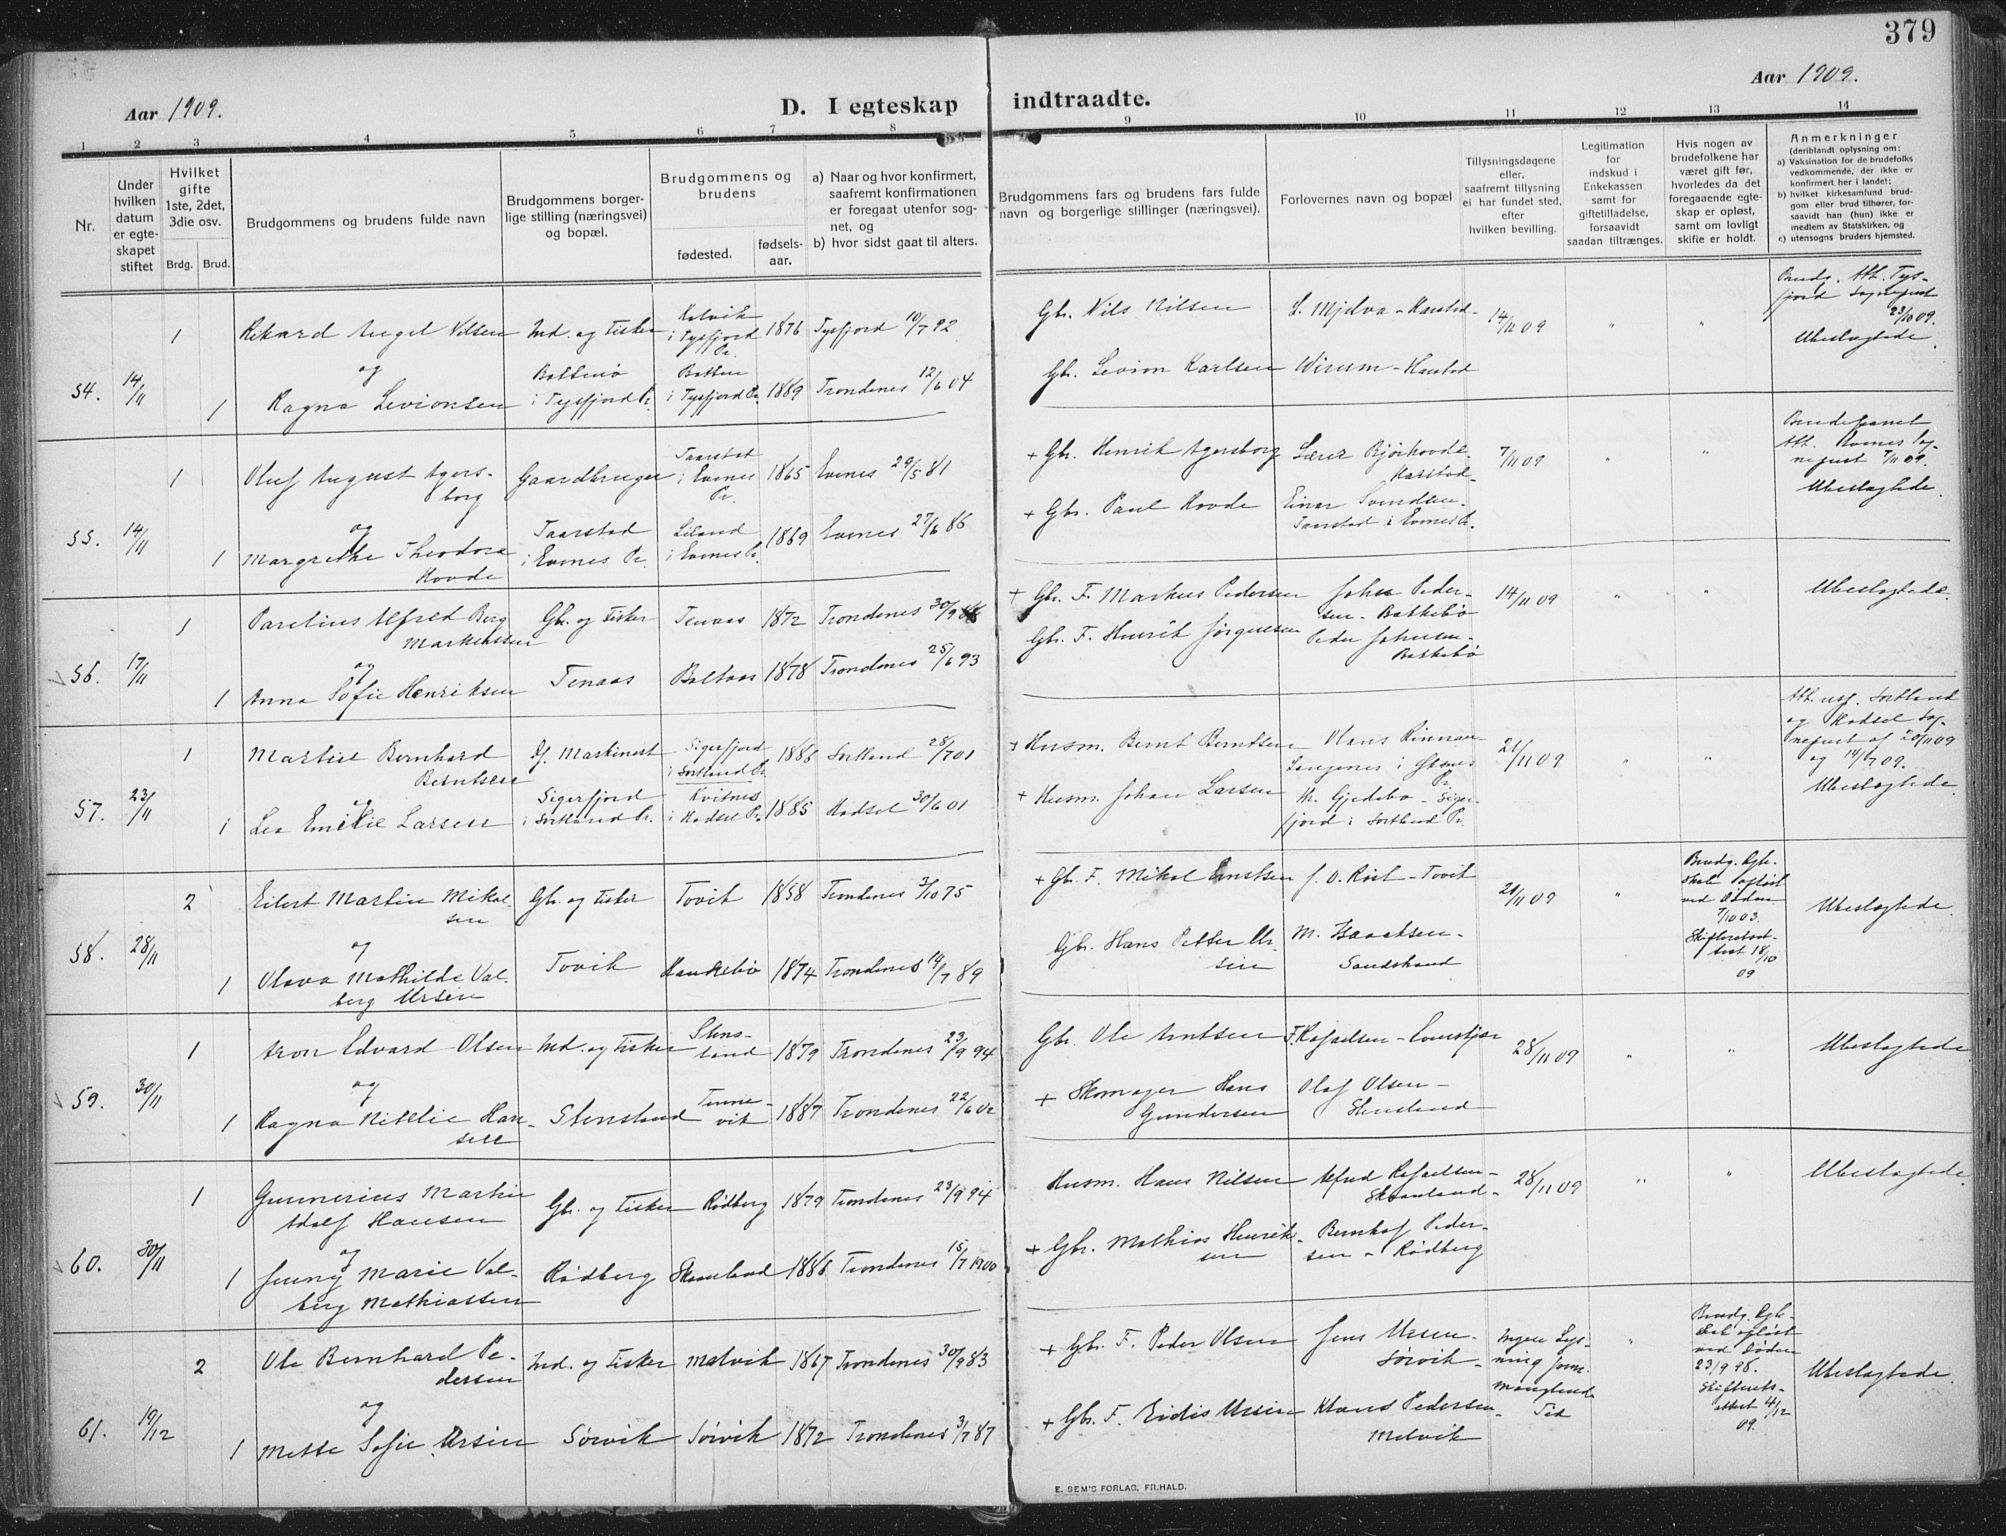 379
Aar 1909.
D. I egteskap indtraadte.
Aar 1909.
1 2 3 4 5 6 7 8 9 10 11 12 13 14
Nr.
Under hvilken datum er egteskapet stiftet
Hvilket gifte 1ste, 2det, 3die osv.
Brdg. Brud.
Brudgommens og brudens fulde navn
Brudgommens borgerlige stilling (næringsvei) og bopæl.
Brudgommens og brudens
fødested.
fødselsaar.
a) Naar og hvor konfirmert, saafremt konfirmationen er foregaat utenfor sognet, og
b) hvor sidst gaat til alters.
Brudgommens fars og brudens fars fulde navn og borgerlige stillinger (næringsvei).
Forlovernes navn og bopæl
Tillysningsdagene eller, saafremt tillysning ei har fundet sted, efter hvilken bevilling.
Legitimation for indskud i Enkekassen samt for giftetilladelse, forsaavidt saadan tiltrænges.
Hvis nogen av brudefolkene har været gift før, hvorledes da det foregaaende egteskap er opløst, samt om lovligt skifte er holdt.
Anmerkninger
(deriblandt oplysning om:
a) Vaksination for de brudefolks vedkommende, der ikke er konfirmert her i landet;
b) hvilket kirkesamfund brudgom eller brud tilhører, forsaavidt han (hun) ikke er medlem av Statskirken, og
c) utensogns bruders hjemsted.
54. 14/11
1 Rikard Angel Nilsen Ind. og Fisker Kolvik i Tysfjord Pr. 1876 Tysfjord 10/7 92 Gbr. Nils Nilsen L. Mjelva - Harstad - 14/11 09 " "
Brudg. Att. Tysfjord Sognepræst 23/10 09. Ubeslægtede.
og
1 Ragna Levionsen i Tysfjord Pr. i Tysfjord Pr. 1889 Trondenes 12/6 04 Gbr. Levion Karlsen Wirum - Harstad
55. 14/11
1 Oluf August Agersborg Gaardbruger Taarstad i Evenes Pr. 1865 Evenes 29/5 81 + Gbr. Henrik Agersborg Lærer Bjørhovde - Harstad - 7/11 09 " "
Att. Evenes Sognepræst 7/11 09. Ubeslægtede.
og
1 Margrethe Theodora Hovde Taarstad i Evenes Pr. Liland i Evenes Pr. 1869 Evenes 27/6 86 + Gbr. Paul Hovde Einar Svendsen - Taarstad i Evenes Pr.
56. 17/11
1 Parelius Alfred Berg Markussen Gbr. og Fisker Tenaas 1872 Trondenes 30/9 88 + Gbr. F. Markus Pedersen John Pedersen - Bakkebø 14/11 09 " " Ubeslægtede.
og
1 Anna Sofie Henriksen Tenaas Boltaas 1878 Trondenes 25/6 93 Gbr. F. Henrik Jørgensen Peder Johnsen - Bakkebø
57. 23/11
1 Martin Bernhard Berntsen Maskinist Sigerfjord i Sortland Pr. 1886 Sortland 28/7 01 + Husm. Bernt Berntsen Hans Rinnan - Langenes i Øksnes Pr. 21/11 09 " "
Sortland og Hadsel Sognepræst af 20/11 09 og 14/7 09. Ubeslægtede.
og
1 Lea Emilie Larsen Sigerfjord i Sortland Pr. Kvitnes i Hadsel Pr. 1885 Hadsel 30/6 01 + Husm. Johan Larsen Kr. Gjedebo - Sigerfjord i Sortland Pr.
58. 28/11
2 Eilert Martin Mikalsen Gbr. og Fisker Tovik 1858 Trondenes 3/10 75 + Gbr. F. Mikal J. O. Røst - Tovik 21/11 09 "
Brudg. Egteskab opløst ved Døden 7/10 03. Skifteretsattest 18/10 09
Ubeslægtede.
og
1 Olava Mathilde Valberg Ursin Tovik Haukebø 1874 Trondenes 14/7 89 Gbr. Hans Petter Ursin M. Isaaksen - Sandstrand
59. 30/11
1 Aron Edvard Olsen Ind. og Fisker Stensland 1879 Trondenes 23/9 94 Gbr. Ole Arntsen F. Rafaelsen - 28/11 09 " " Ubeslægtede
og
1 Ragna Nikoline Hansen Stensland Tennevik 1887 Trondenes 22/6 02 + Skomager Hans Gundersen Olaf Olsen - Stensland
60. 30/11
1 Gunnerius Martin Adolf Hansen Gbr. og Fisker Rødberg 1879 Trondenes 23/9 94 Husm. Hans Nilsen Alfred Rafaelsen - Skaanland - 28/11 09 " " Ubeslægtede.
og
1 Jenny Marie Valberg Mathiassen Rødberg Skaanland 1886 Trondenes 15/7 1900 + Gbr. Mathias Henriksen Bernhof Pedersen - Rødberg
61. 19/12
2 Ole Bernhard Pedersen Ind. og Fisker Melvik 1867 Trondenes 30/9 83 + Gbr. F. Peder Olsen Jens Ursin - Sørvik - Ingen Lysning paa Manglende Tid "
Brudg. Egteskab opløst ved Døden 23/9 98. Skifteretsattest 4/12 09.
Ubeslægtede.
og
1 Mette Sofie Ursin Sørvik Sørvik 1872 Trondenes 3/7 87 + Gbr. F. Eidis Ursin Klaus Pedersen - Melvik
E. SEM'S FORLAG, FR.HALD.